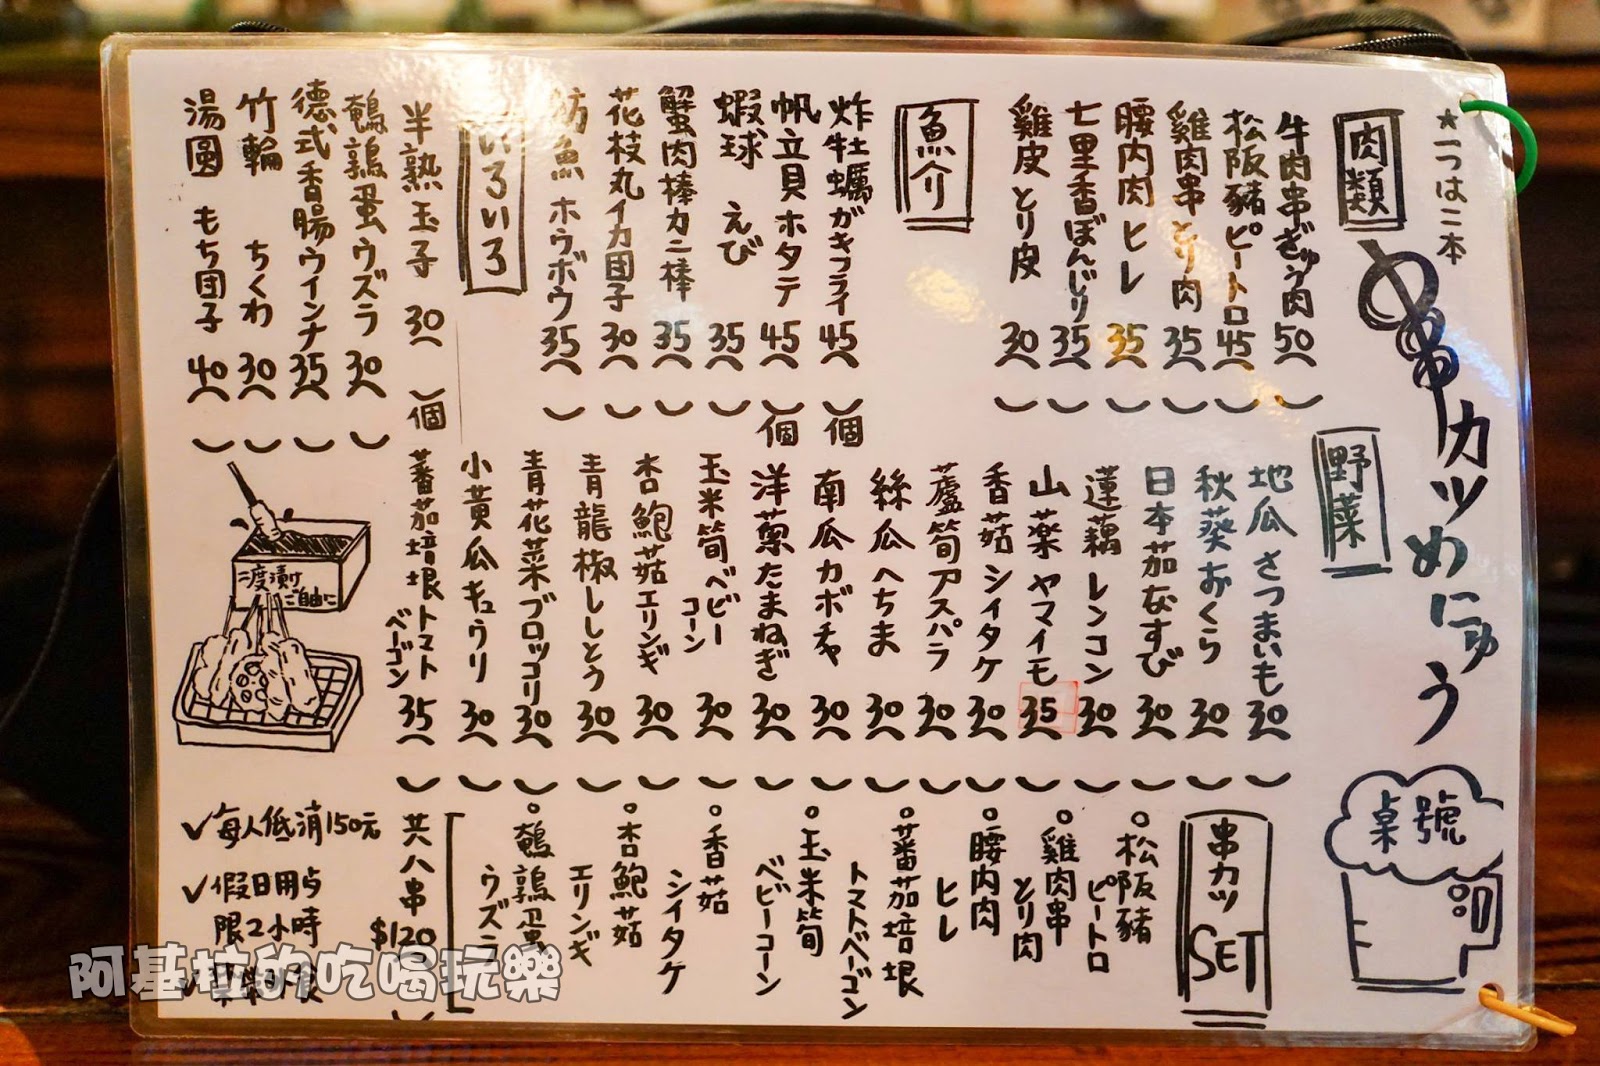 ★一つは二本
串カツめにゅう
桌號
肉類
牛肉串ぎゅう肉 50
松阪豬ピートロ 45
雞肉串とり肉 35
腰内肉 ヒレ 35
七里香ぼんじり 35
雞皮 とり皮 30
魚介
炸牡蠣ガキフライ 45 ( )個
帆立貝ホタテ 45 ( )個
蝦球 えび 35
蟹肉棒カニ棒 35
花枝丸イカ団子 30
魴魚 ホウボウ 35
いろいろ
半熟玉子 30 ( )個
鵪鶉蛋ウズラ 30
德式香腸ウインナ 35
竹輪 ちくわ 30
湯圓 もち団子 40
野菜
地瓜 さつまいも 30
秋葵おくら 30
日本茄なすび 30
蓮藕 レンコン 30
山藥 ヤマイモ 35
香菇 シイタケ 30
蘆筍アスパラ 30
絲瓜へちま 30
南瓜カボチャ 30
洋蔥たまねぎ 30
玉米筍ベビーコーン 30
杏鮑菇エリンギ 30
青龍椒ししとう 30
青花菜ブロッコリ 30
小黃瓜キュウリ 30
蕃茄培根トマトベーゴン 35
二度漬け
ご自由に
串カツSET
。松阪豬 ピートロ
。雞肉串 とり肉
。腰内肉 ヒレ
。蕃茄培根 トマトベーゴン
。玉米筍 ベビーコーン
。香菇 シイタケ
。杏鮑菇 エリンギ
。鵪鶉蛋 ウズラ
共八串
$120
✓每人低消150元
✓假日用餐
限2小時
阿基拉的吃喝玩樂